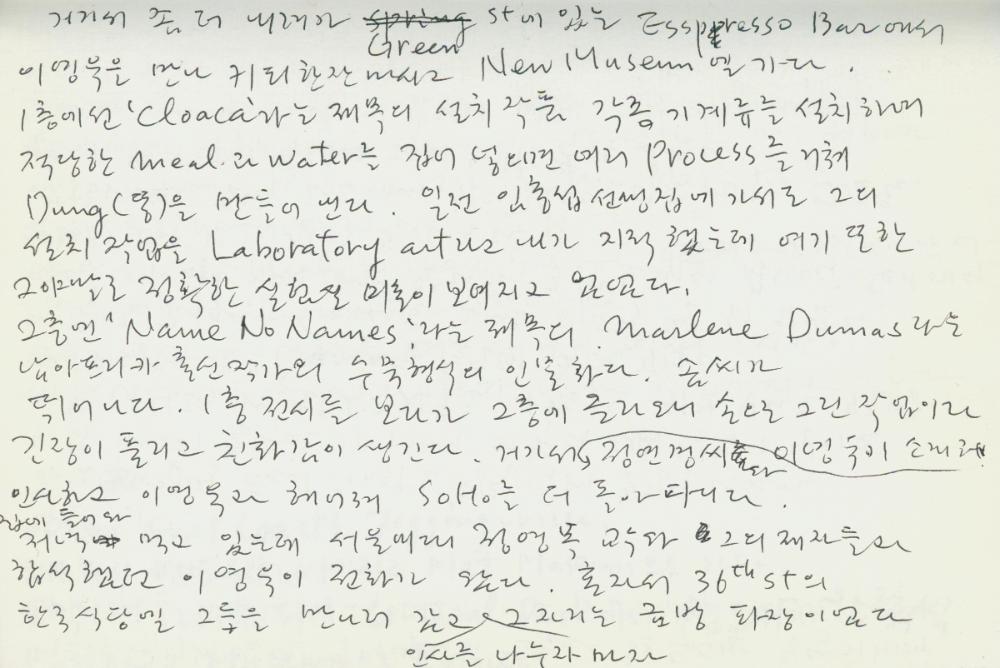 거기서 좀 더 내려가 spring Green st에 있는 Esspresso Bar에서
이영욱을 만나 커피한잔 마시고 New Museum엘 가다.
1층에선 'Cloaca'라는 제목의 설치 작품 각종 기계류를 설치하여
적당한 meal과 water를 집어 넣으면 여러 Process를 거쳐
Dung(똥)을 만들어 낸다. 일전 임충섭 선생집에 가서도 그의
설치 작업을 Laboratory art라고 내가 지적했는데 여기 또한
그야말로 정확한 실험실 미술이 보여지고 있었다.
2층엔 'Name No Names'라는 제목의 Marlene Dumas라는
남아프리카 출신 작가의 수묵형식의 인물화다. 솜씨가
뛰어나다. 1층 전시를 보다가 2층에 올라오니 손으로 그린 작업이라
긴장이 풀리고 친화감이 생긴다. 거기서 정연경씨 이영욱이 소개해
인사하고 이영욱과 헤어져 SoHo를 더 돌아다니다.
집에 돌아와
저녁 먹고 있는데 서울에서 정영목 교수와 그의 제자들과
합석했던 이영욱이 전화가 왔다. 혼자서 36th st의
한국식당엘 그들을 만나러 갔고 그 자리는 금방 파장이었다
인사를 나누자 마자